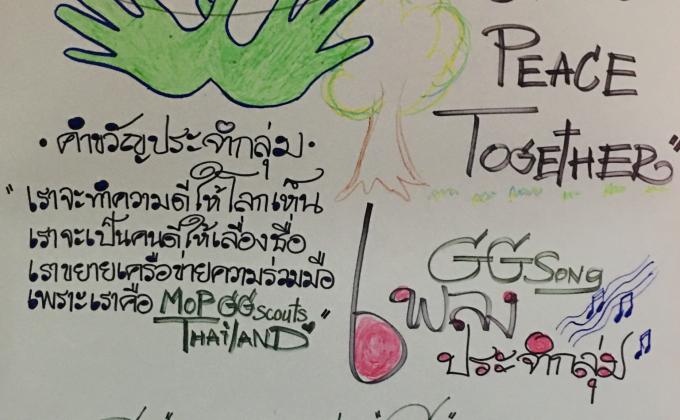 PEACE
TOGETHER"
• คำขวัญประจำกลุ่ม •
"เราจะทำความดีให้โลกเห็น
เราจะเป็นคนดีให้เลื่องชื่อ
เราขยายเครือข่ายความร่วมมือ
เพราะเราคือ MOP GG scouts
THAILAND"
GG SONG
เพลง
ประจำกลุ่ม